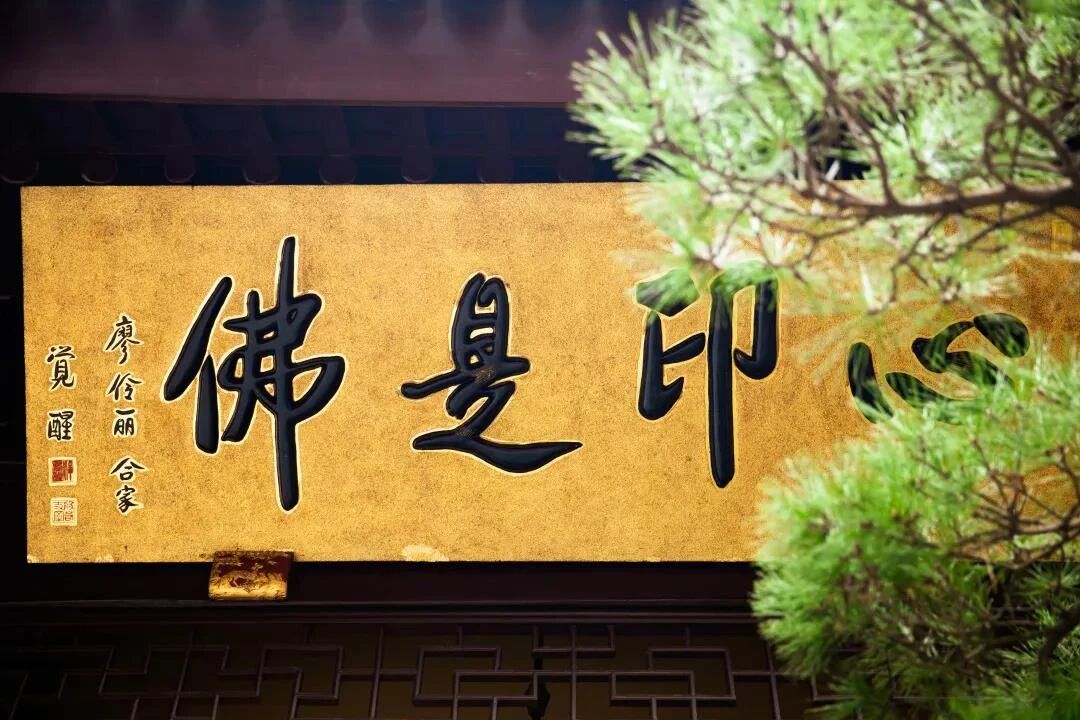 心印是佛
廖伶丽 合家
覚醒